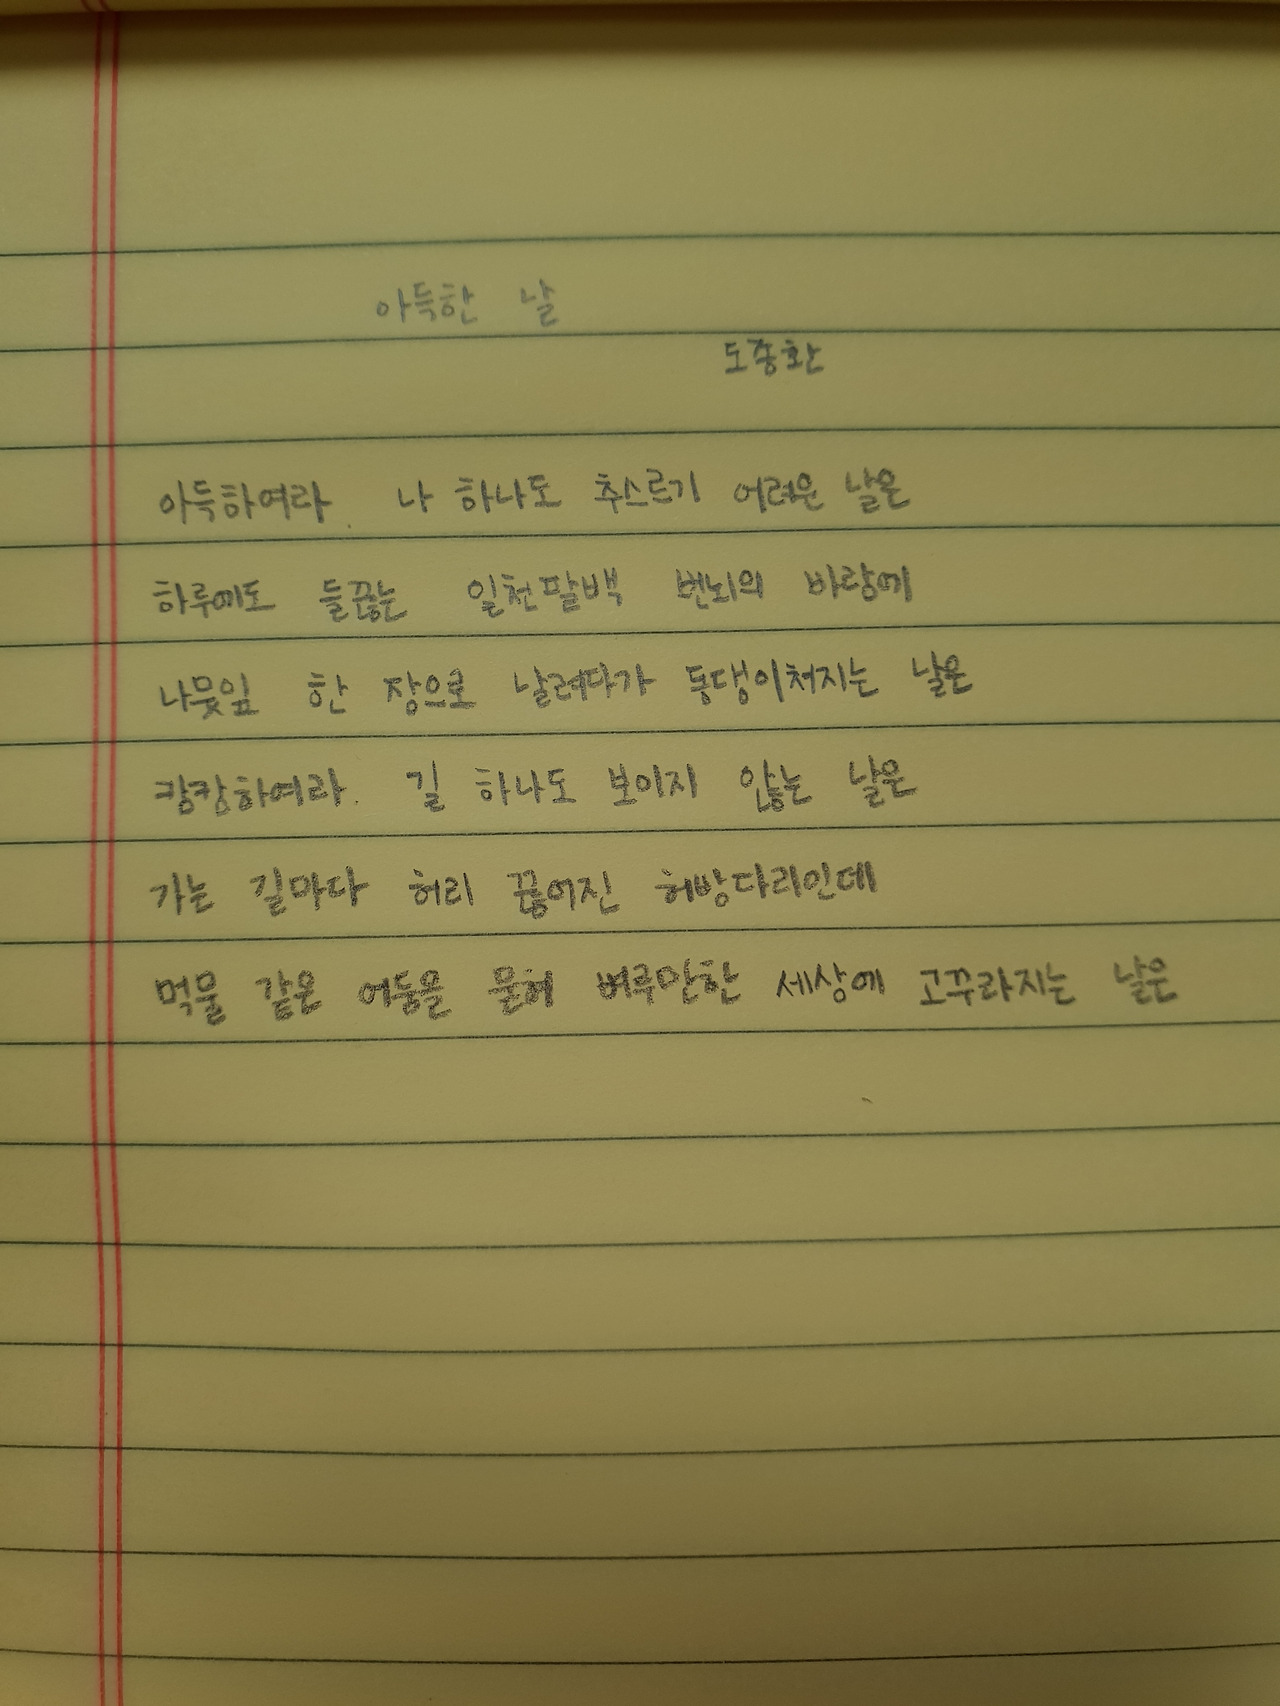 아득한 날
도종환
아득하여라. 나 하나도 추스르기 어려운 날은
하루에도 들끓는 일천팔백 번뇌의 바람에
나뭇잎 한 장으로 날려다가 동댕이쳐지는 날은
캄캄하여라. 길 하나도 보이지 않는 날은
가는 길마다 허리 끊어진 허방다리인데
먹물 같은 어둠을 묻혀 벼루만한 세상에 고꾸라지는 날은